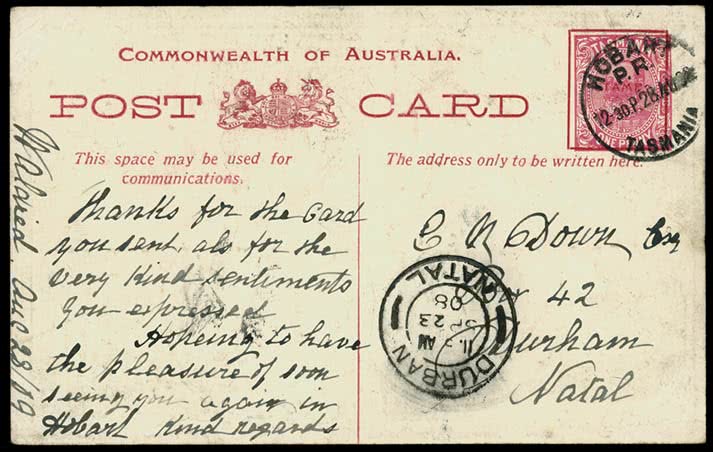 COMMONWEALTH OF AUSTRALIA.
POST CARD
This space may be used for
communications.
The address only to be written here.
TASMANIA
STAMP
HOBART
P.R
12-30P.28.AU
TASMANIA
Thanks for the Card
you sent, als for the
very kind sentiments
you expressed
Hopeing to have
the pleasure of soon
seeing you again in
Hobart Kind regards
Aug 28/19
C N Down Esq
Box 42
Durham
Natal
DURBAN
11. AM
SP 23
08
NATAL